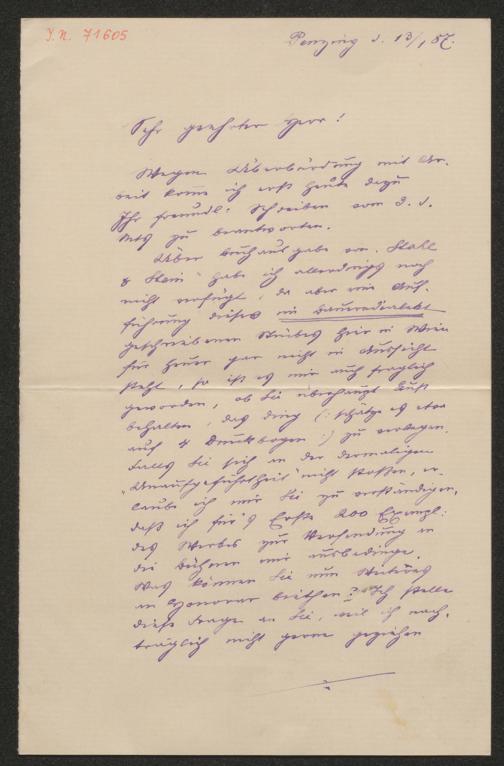 J.N. 71605
Penzing d. 13/1 87.
Sehr geehrter Herr!
Wegen Überbürdung mit Ar-
beit komme ich erst heute dazu
Ihr freundl. Schreiben vom 3. d.
Mts zu beantworten.
Über Buchausgabe von „Stahl
& Stein" habe ich allerdings noch
nicht verfügt, da aber eine Auf-
führung dieses im Bauerndialekt
geschriebenen Stückes hier in Wien
für heuer gar nicht in Aussicht
steht, so ist es mir auch fraglich
geworden, ob Sie überhaupt Lust
behalten, das Ding (: schätze es etwa
auf 4 Druckbogen :) zu verlegen.
Falls Sie sich an der dermaligen
„Unaufgeführtheit" nicht stoßen, er-
laube ich mir Sie zu verständigen,
daß ich für's Erste 200 Exempl:
des Werkes zur Versendung an
die Bühnen mir ausbedinge.
Was können Sie nun Weiteres
an Honorar biethen? Ich stelle
diese Frage an Sie, weil ich nach-
träglich nicht gerne geziehen